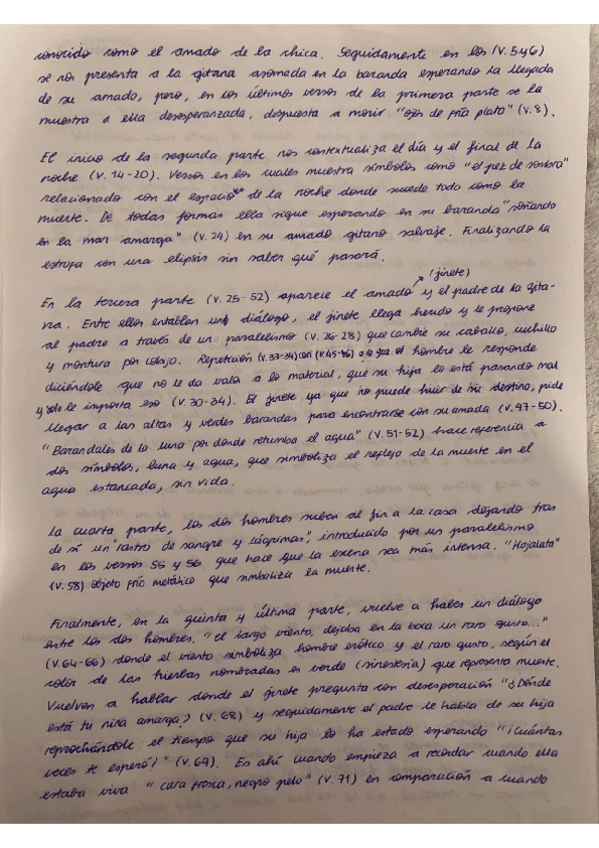 conocido como el amado de la chica. Seguidamente en los (V. 5 y 6)
se nos presenta a la gitana asomada en la baranda esperando la llegada
de su amado, pero, en los últimos versos de la primera parte se la
muestra a ella desesperanzada, despuesta a morir "ojos de fría plata" (V. 8).
El inicio de la segunda parte nos contextualiza el día y el final de la
noche (V. 14-20). Versos en los cuales muestra símbolos como "el pez de sombra"
relacionado con el espacio de la noche donde sucede todo como la
muerte. De todas formas ella sigue esperando en su baranda "soñando
en la mar amarga" (V. 24) en su amado gitano salvaje. Finalizando la
estrofa con una elipsis sin saber qué pasará.
(jinete)
En la tercera parte (V. 25-52) aparece el amado y el padre de la gita-
na. Entre ellos entablan un diálogo, el jinete llega herido y le propone
al padre a través de un paralelismo (V. 26-28) que cambie su caballo, cuchillo
y montura por cobijo. Repetición (V. 33-34) con (V. 45-46) el hombre le responde
diciéndole que no le da valor a lo material, que su hija lo está pasando mal
y solo le importa eso (V. 30-34). El jinete ya que no puede huir de su destino, pide
llegar a las altas y verdes barandas para encontrarse con su amada (V. 47-50).
"Barandales de la luna por donde retumba el agua" (V. 51-52) hace referencia a
dos símbolos, luna y agua, que simboliza el reflejo de la muerte en el
agua estancada, sin vida.
La cuarta parte, los dos hombres suben al fin a la casa dejando tras
de sí un "rastro de sangre y lágrimas", introducido por un paralelismo
en los versos 55 y 56 que hace que la escena sea más intensa. "Hojalata"
(V. 58) objeto frío metálico que simboliza la muerte.
Finalmente, en la quinta y última parte, vuelve a haber un diálogo
entre los dos hombres, "el largo viento, dejaba en la boca un raro gusto..."
(V. 64-66) donde el viento simboliza hombre erótico y el raro gusto, según el
color de las hierbas nombradas es verde (sinestesia) que representa muerte.
Vuelven a hablar donde el jinete pregunta con desesperación "¿Dónde
está tu niña amarga? (V. 68) y seguidamente el padre le habla de su hija
reprochándole el tiempo que su hija lo ha estado esperando "¡Cuántas
veces te esperó!" (V. 69). Es ahí cuando empieza a recordar cuando ella
estaba viva "cara fresca, negro pelo" (V. 71) en comparación a cuando